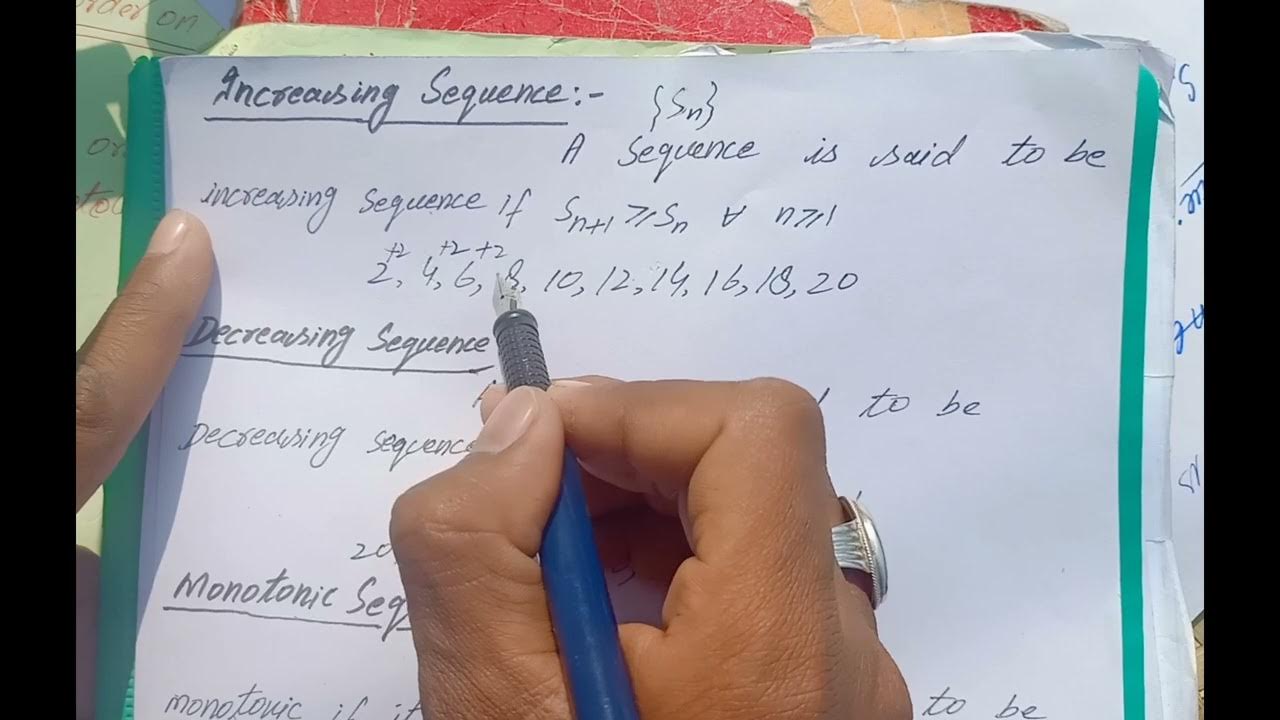 order on
Increasing Sequence:- {Sn}
A Sequence is said to be
increasing Sequence if Sn+1 ≥ Sn ∀ n≥1
+2 +2 +2
2, 4, 6, 8, 10, 12, 14, 16, 18, 20
Decreasing Sequence
to be
Decreasing sequence
20
Monotonic Seq
monotonic if it to be